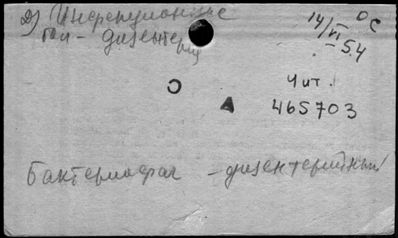 2) Инфекционные
б-ни - дизентерия
14/VI 54
ОС
Чит.
465703
Бактериофаг - дизентерийный